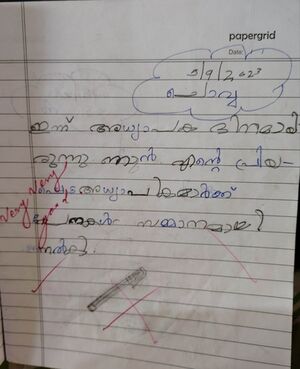 papergrid
Date:
5/9/2023
ചൊവ്വ
ഇന്ന് അധ്യാപക ദിനമായി
രുന്നു ഞാൻ എന്റെ പ്രിയ-
പ്പെട്ട അധ്യാപികമാർക്ക്
പേനകൾ സമ്മാനമായി
നൽകി.
Very Very
Good